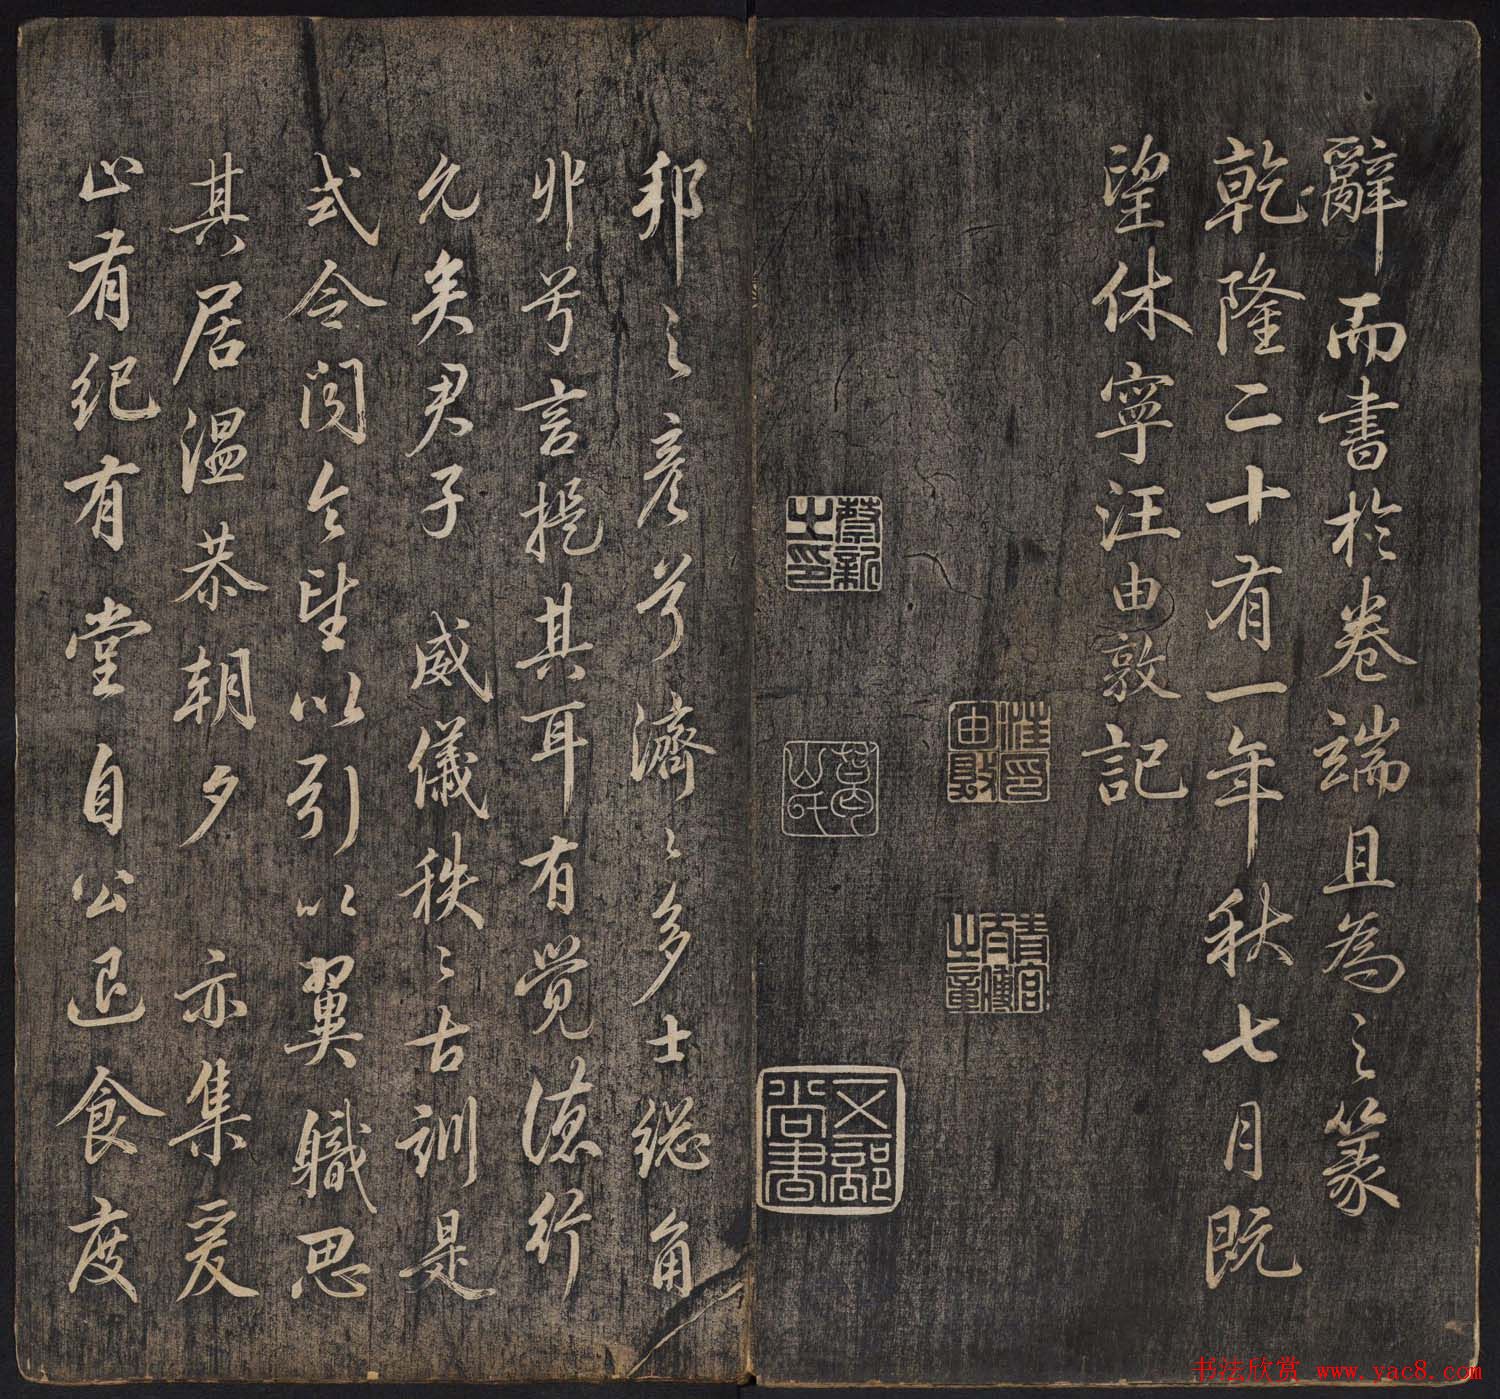 辭而書於卷端且為之篆
乾隆二十有一年秋七月既
望休寧汪由敦記
汪由敦印
蔡新之印
葛山氏
五部尚書
邦之彦兮濟〻多士總角
丱兮言提其耳有覺德行
允矣君子威儀秩〻古訓是
式令聞令望以引以翼職思
其居温恭朝夕亦集爰
止有紀有堂自公退食度
书法欣赏 www.yac8.com